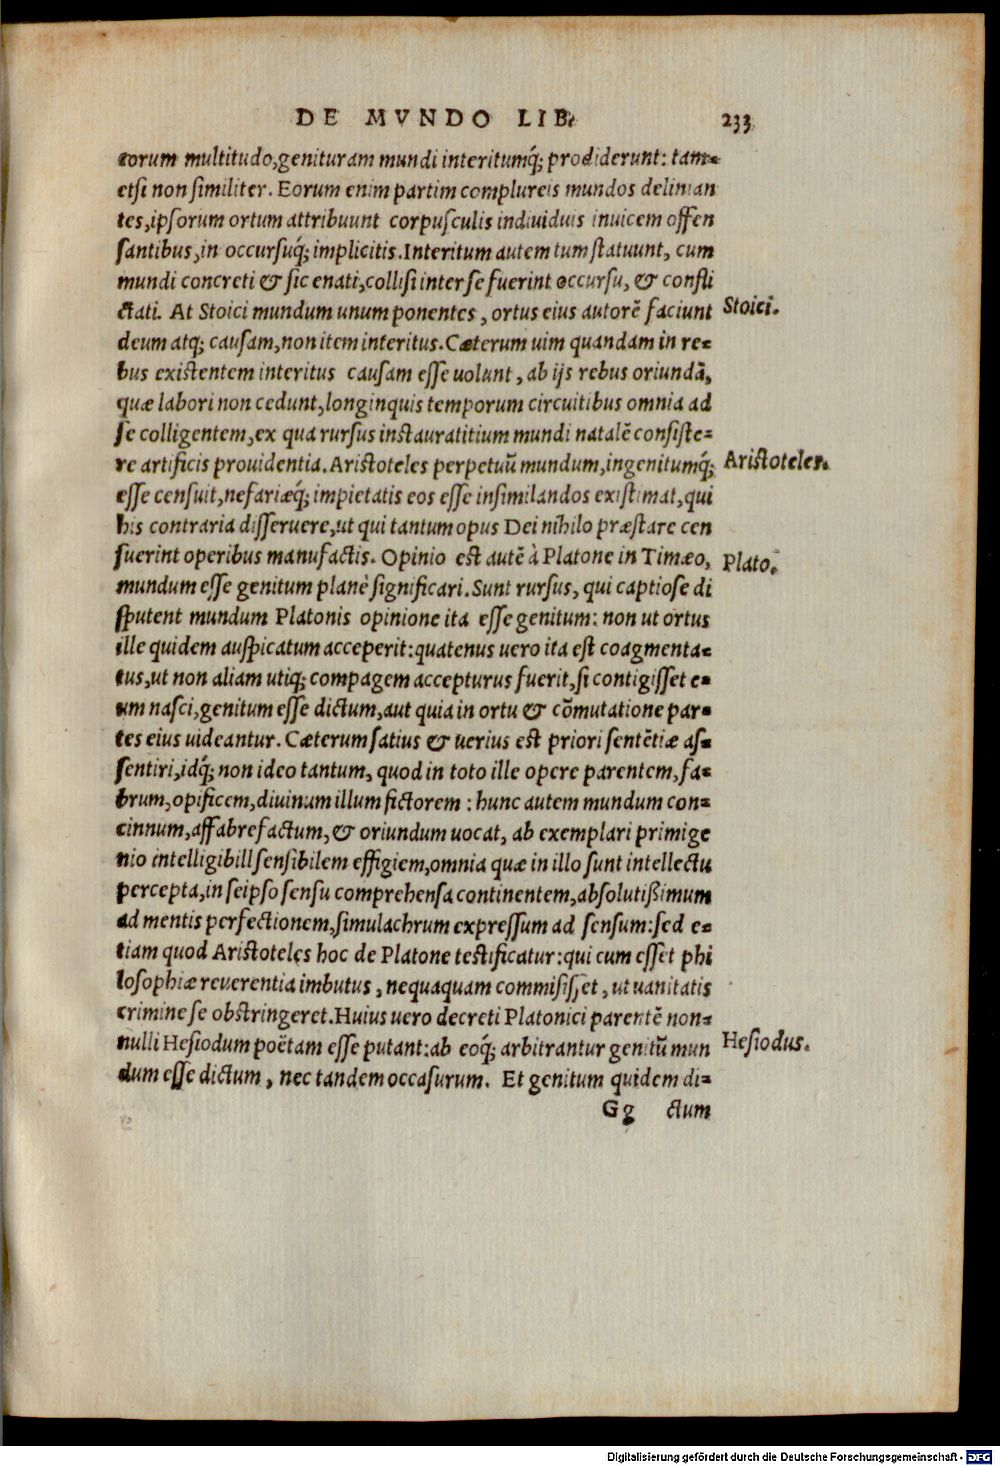 DE MVNDO LIB. 233
torum multitudo,genituram mundi interitumq́; prodiderunt: tam-
etsi non similiter. Eorum enim partim complureis mundos delinian
tes,ipsorum ortum attribuunt corpusculis indiuiduis inuicem offen
santibus,in occursuq́; implicitis.Interitum autem tum statuunt, cum
mundi concreti & sic enati,collisi inter se fuerint occursu, & confli
ctati. At Stoici mundum unum ponentes, ortus eius autorē faciunt
Stoici.
deum atq; causam,non item interitus. Cæterum uim quandam in re-
bus existentem interitus causam esse uolunt, ab ijs rebus oriundā,
quæ labori non cedunt,longinquis temporum circuitibus omnia ad
se colligentem,ex qua rursus instauratitium mundi natalē consiste-
re artificis prouidentia. Aristoteles perpetuū mundum,ingenitumq́;
Aristoteles.
esse censuit,nefariæq́; impietatis eos esse insimilandos existimat,qui
his contraria disseruere,ut qui tantum opus Dei nihilo præstare cen
suerint operibus manufactis. Opinio est autē à Platone in Timæo,
Plato.
mundum esse genitum planè significari. Sunt rursus, qui captiose di
sputent mundum Platonis opinione ita esse genitum: non ut ortus
ille quidem auspicatum acceperit:quatenus uero ita est coagmenta-
tus,ut non aliam utiq; compagem accepturus fuerit,si contigisset e-
um nasci,genitum esse dictum,aut quia in ortu & cōmutatione par-
tes eius uideantur. Cæterum satius & uerius est priori sentētiæ as-
sentiri,idq́; non ideo tantum, quod in toto ille opere parentem,fa-
brum,opificem,diuinum illum fictorem: hunc autem mundum con-
cinnum,affabrefactum, & oriundum uocat, ab exemplari primige
nio intelligibili sensibilem effigiem,omnia quæ in illo sunt intellectu
percepta,in seipso sensu comprehensa continentem,absolutißimum
ad mentis perfectionem,simulachrum expressum ad sensum:sed e-
tiam quod Aristoteles hoc de Platone testificatur:qui cum esset phi
losophiæ reuerentia imbutus, nequaquam commisisset, ut uanitatis
crimine se obstringeret.Huius uero decreti Platonici parentē non-
nulli Hesiodum poëtam esse putant:ab eoq́; arbitrantur genitū mun
Hesiodus.
dum esse dictum, nec tandem occasurum. Et genitum quidem di-
Gg ctum
Digitalisierung gefördert durch die Deutsche Forschungsgemeinschaft - DFG